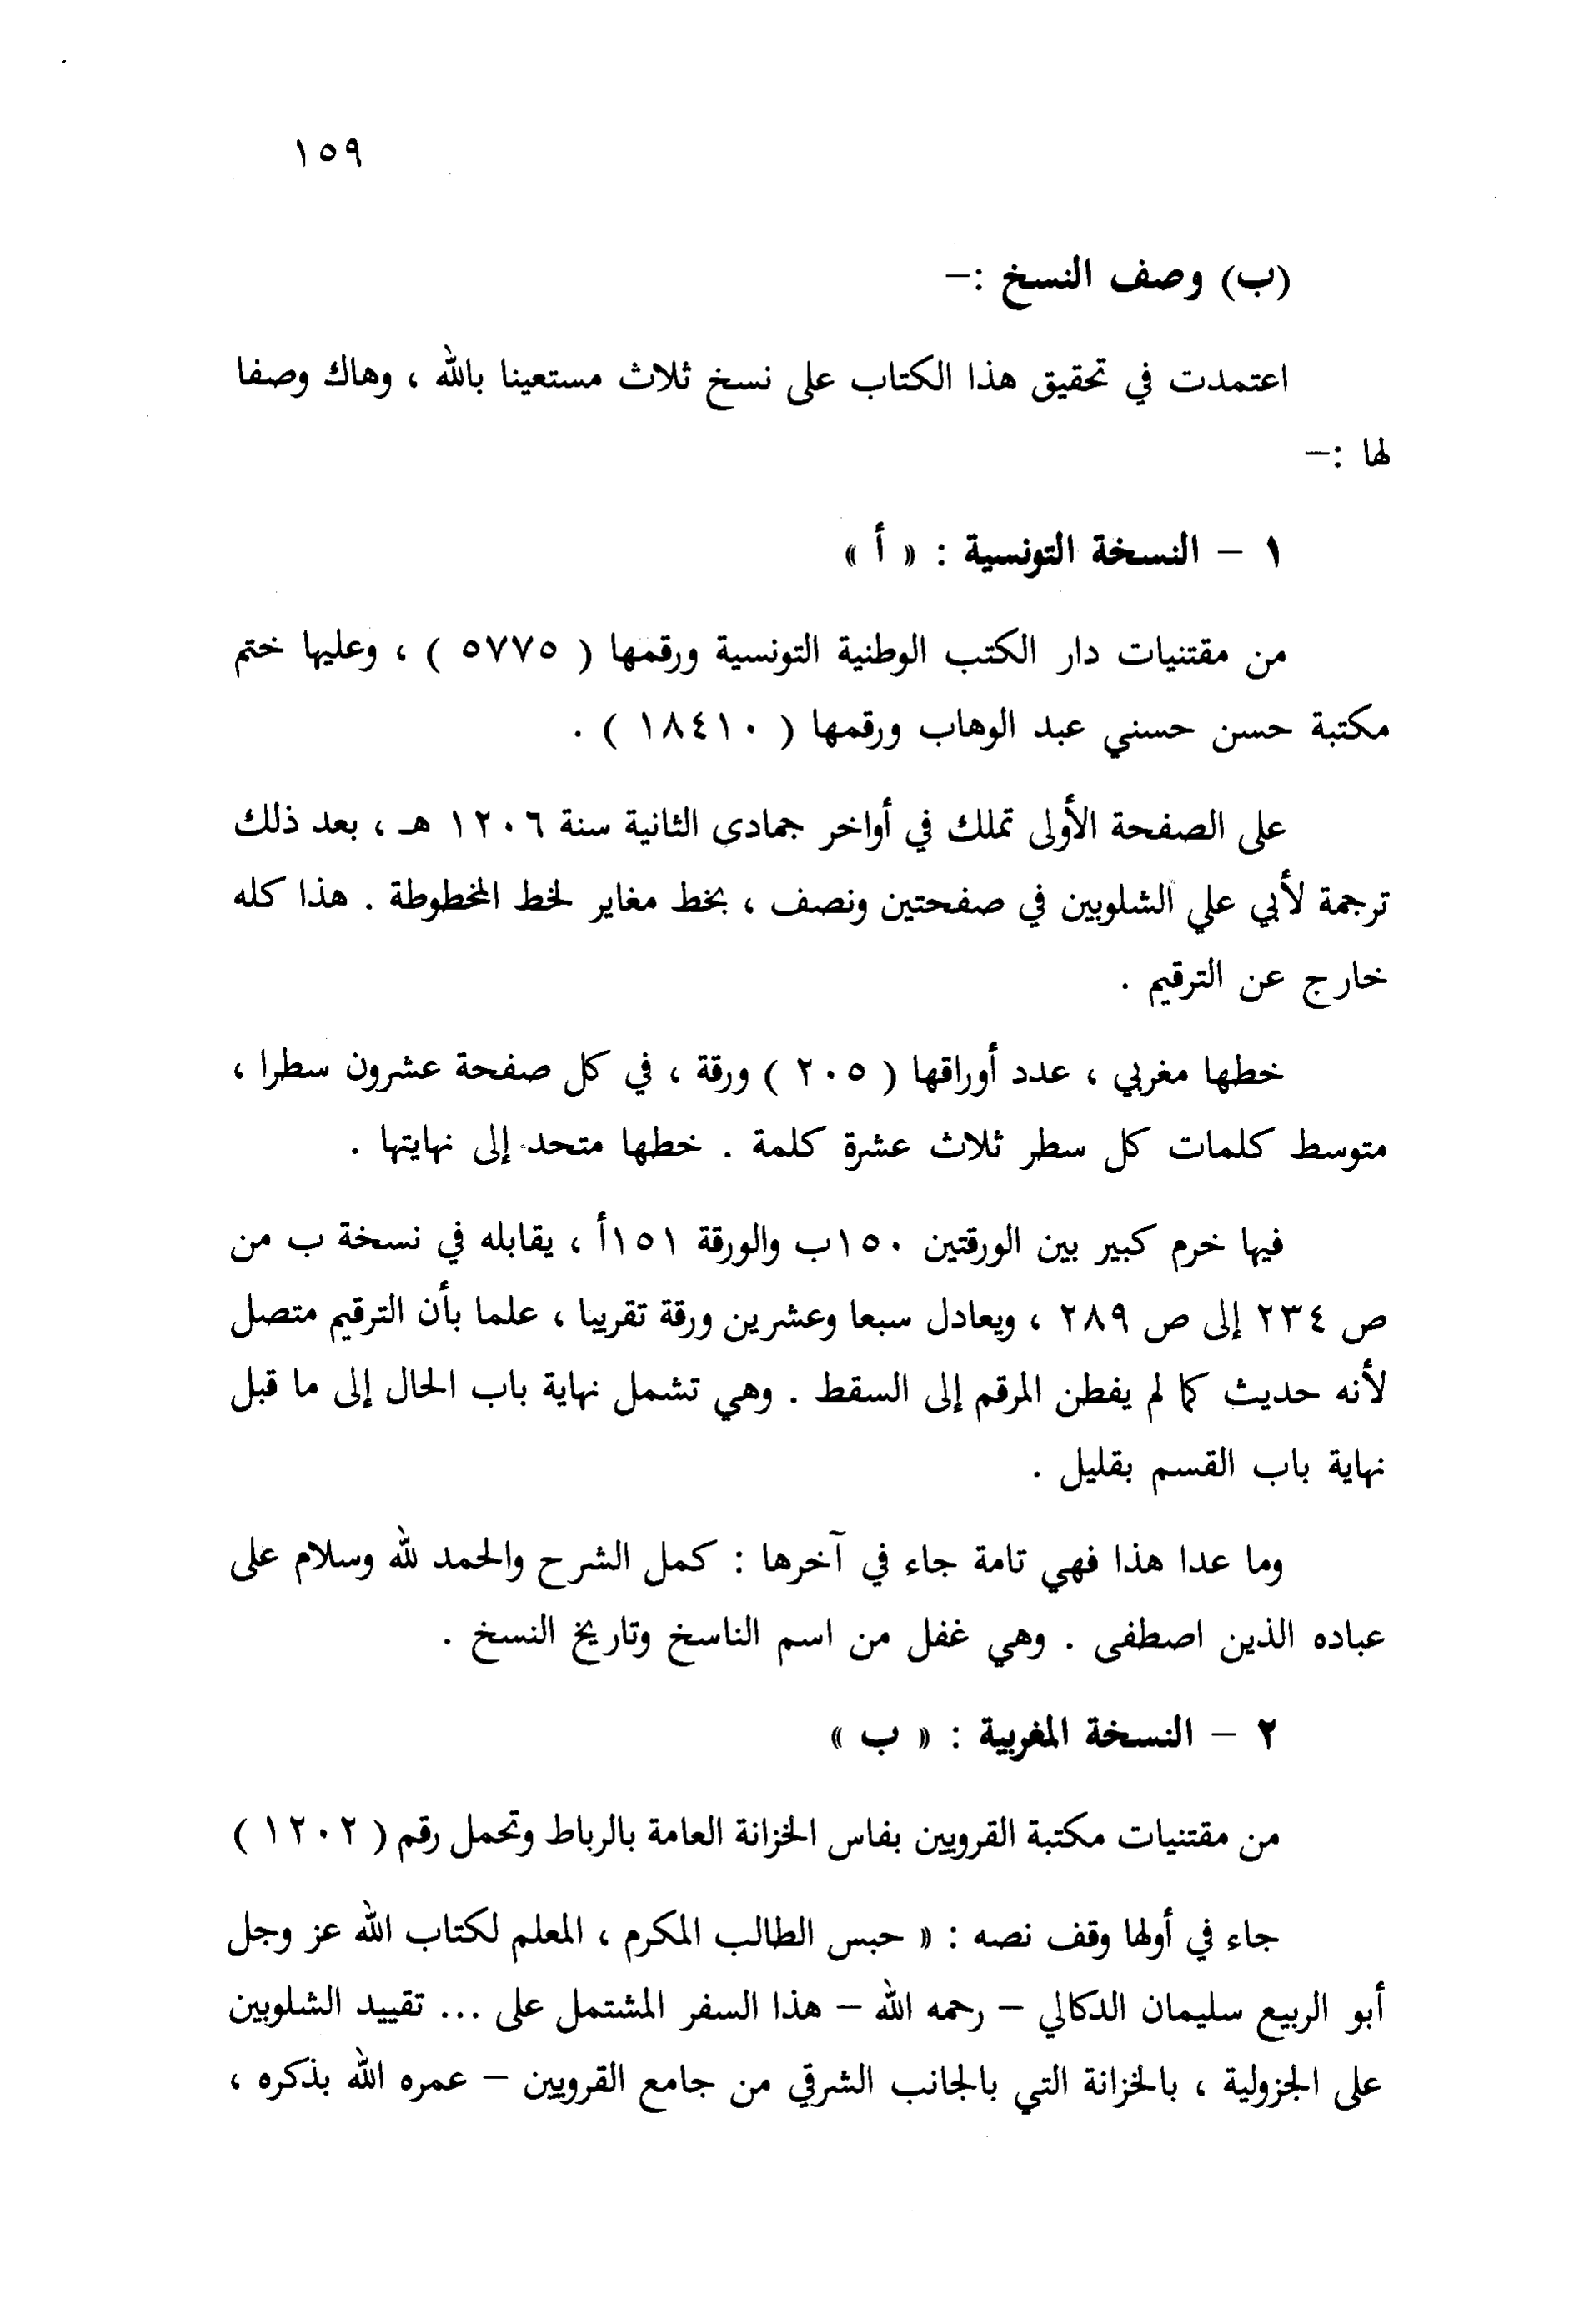 ١٥٩
(ب) وصف النسخ :–
اعتمدت في تحقيق هذا الكتاب على نسخ ثلاث مستعينا بالله ، وهاك وصفا
لها :–
١ – النسخة التونسية : « أ »
من مقتنيات دار الكتب الوطنية التونسية ورقمها ( ٥٧٧٥ ) ، وعليها ختم
مكتبة حسن حسني عبد الوهاب ورقمها ( ١٨٤١٠ ) .
على الصفحة الأولى تملك في أواخر جمادى الثانية سنة ١٢٠٦ هـ ، بعد ذلك
ترجمة لأبي علي الشلوبين في صفحتين ونصف ، بخط مغاير لخط المخطوطة . هذا كله
خارج عن الترقيم .
خطها مغربي ، عدد أوراقها ( ٢٠٥ ) ورقة ، في كل صفحة عشرون سطرا ،
متوسط كلمات كل سطر ثلاث عشرة كلمة . خطها متحد إلى نهايتها .
فيها خرم كبير بين الورقتين ١٥٠ب والورقة ١٥١أ ، يقابله في نسخة ب من
ص ٢٣٤ إلى ص ٢٨٩ ، ويعادل سبعا وعشرين ورقة تقريبا ، علما بأن الترقيم متصل
لأنه حديث كما لم يفطن المرقم إلى السقط . وهي تشمل نهاية باب الحال إلى ما قبل
نهاية باب القسم بقليل .
وما عدا هذا فهي تامة جاء في آخرها : كمل الشرح والحمد لله وسلام على
عباده الذين اصطفى . وهي غفل من اسم الناسخ وتاريخ النسخ .
٢ – النسخة المغربية : « ب »
من مقتنيات مكتبة القرويين بفاس الخزانة العامة بالرباط وتحمل رقم ( ١٢٠٢ )
جاء في أولها وقف نصه : « حبس الطالب المكرم ، المعلم لكتاب الله عز وجل
أبو الربيع سليمان الدكالي – رحمه الله – هذا السفر المشتمل على ... تقييد الشلوبين
على الجزولية ، بالخزانة التي بالجانب الشرقي من جامع القرويين – عمره الله بذكره ،